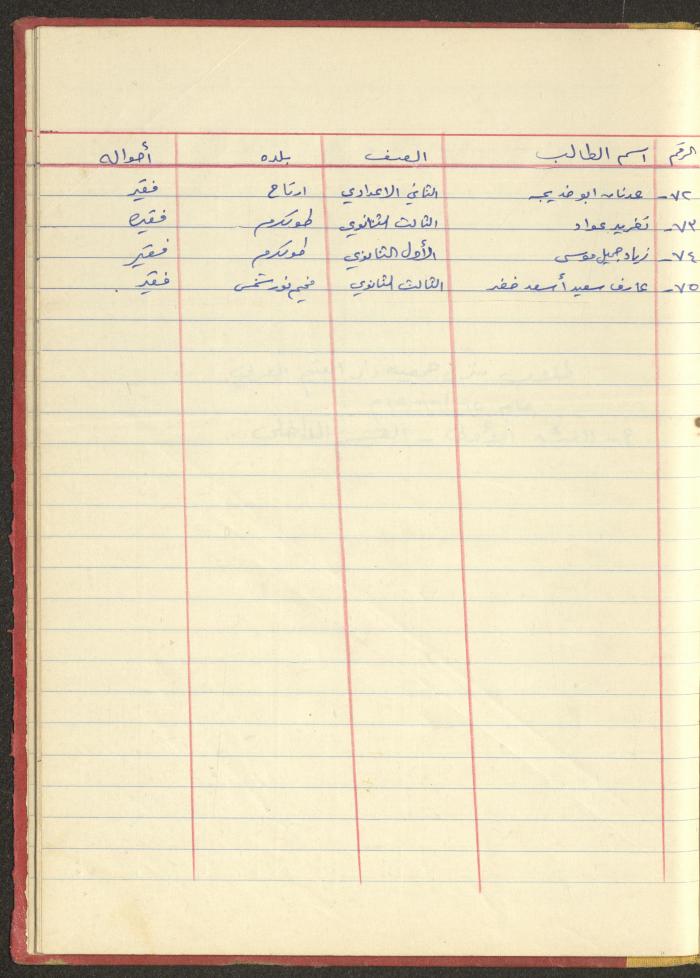 الرقم اسم الطالب الصف بلده أحواله
٧٢- عدنان ابو خديجه الثاني الاعدادي ارتاح فقير
٧٣- تغريد عواد الثالث الثانوي طولكرم فقيره
٧٤- زياد جميل موسى الأول الثانوي طولكرم فقير
٧٥- عارف سعيد أسعد خضر الثالث الثانوي مخيم نور شمس فقير